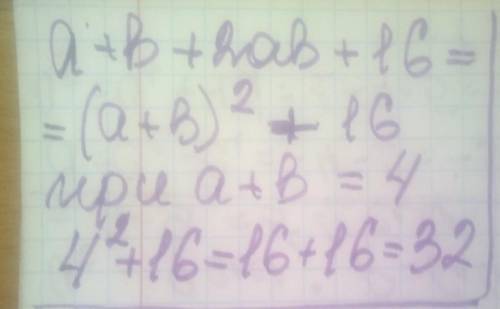 a+b+2ab+16=
=(a+b)²+16
при a+b=4
4²+16=16+16=32